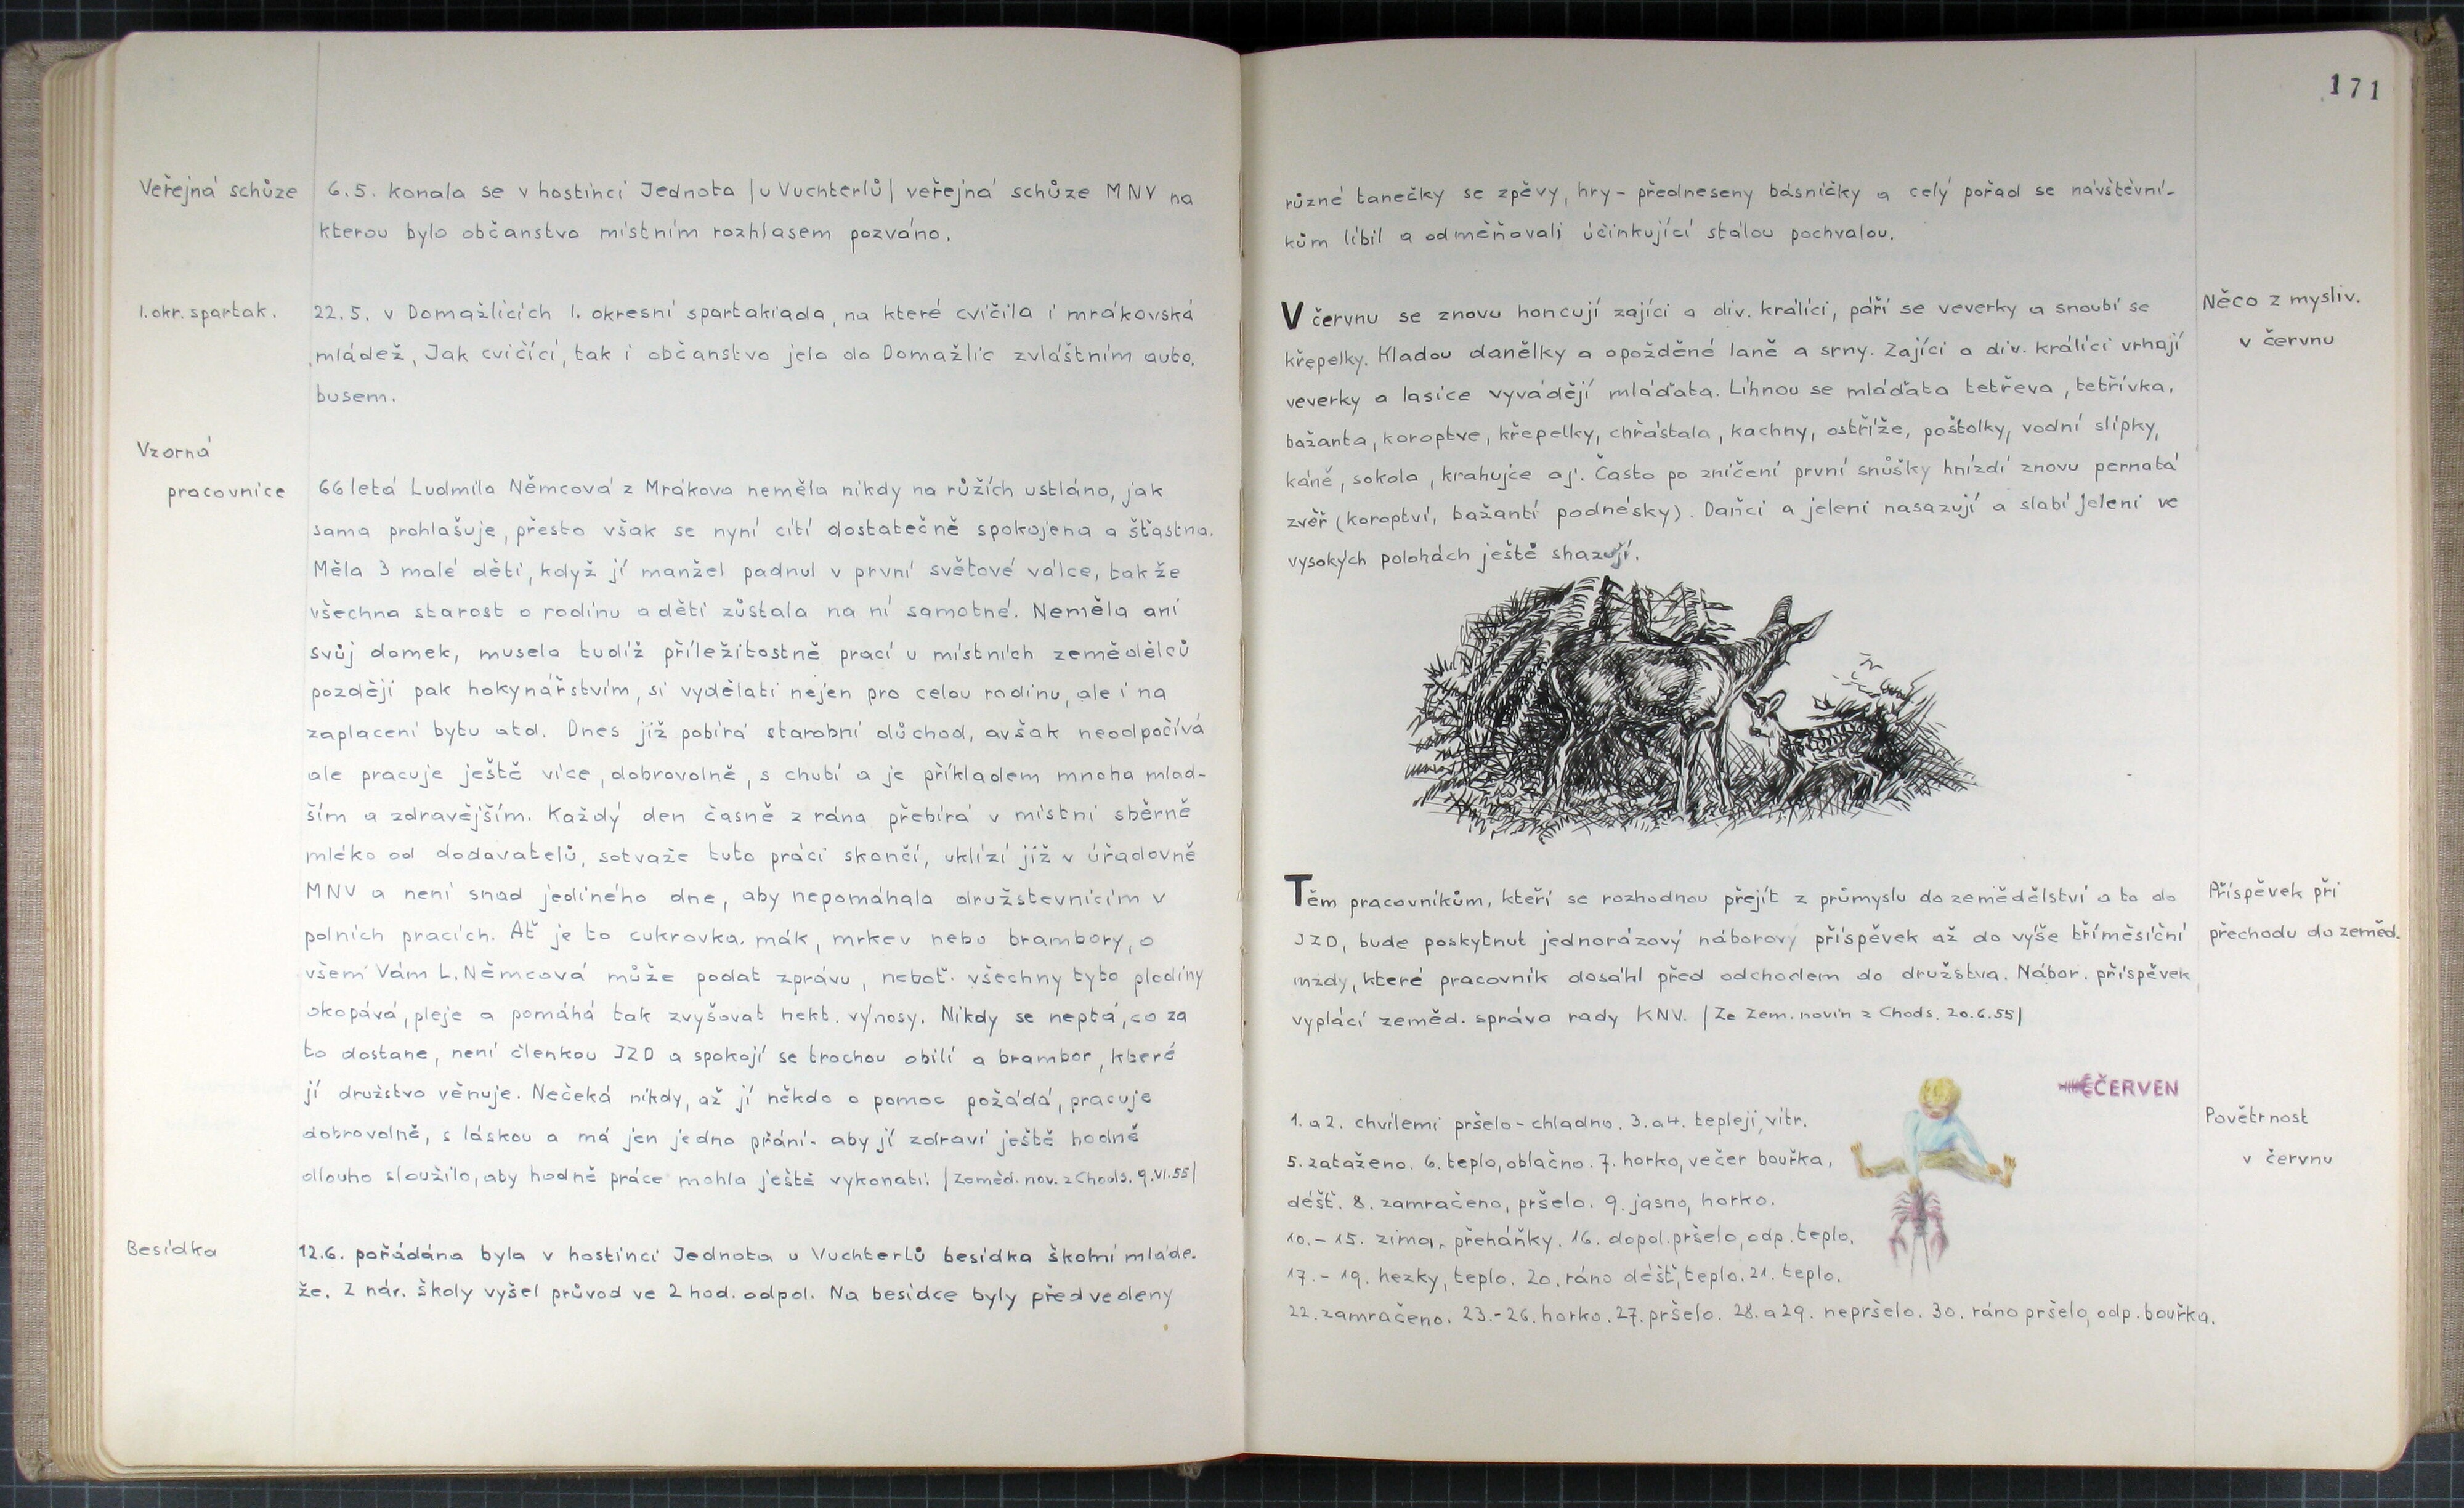 Veřejná schůze
6.5. konala se v hostinci Jednota |u Vuchterlů| veřejná schůze MNV na
kterou bylo občanstvo místním rozhlasem pozváno.
1. okr. spartak.
22.5. v Domažlicích 1. okresní spartakiada, na které cvičila i mrákovská
mládež, Jak cvičící, tak i občanstvo jelo do Domažlic zvláštním auto.
busem.
Vzorná
pracovnice
66letá Ludmila Němcová z Mrákova neměla nikdy na růžích ustláno, jak
sama prohlašuje, přesto však se nyní cítí dostatečně spokojena a šťastna.
Měla 3 malé děti, když jí manžel padnul v první světové válce, tak že
všechna starost o rodinu a děti zůstala na ní samotné. Neměla ani
svůj domek, musela tudíž příležitostně prací u místních zemědělců
později pak hokynářstvím, si vydělati nejen pro celou rodinu, ale i na
zaplacení bytu atd. Dnes již pobírá starobní důchod, avšak neodpočívá
ale pracuje ještě více, dobrovolně, s chutí a je příkladem mnoha mlad-
ším a zdravějším. Každý den časně z rána přebírá v místní sběrně
mléko od dodavatelů, sotvaže tuto práci skončí, uklízí již v úřadovně
MNV a není snad jediného dne, aby nepomáhala družstevnicím v
polních pracích. Ať je to cukrovka. mák, mrkev nebo brambory, o
všem Vám L. Němcová může podat zprávu, neboť všechny tyto plodiny
okopává, pleje a pomáhá tak zvyšovat hekt. výnosy. Nikdy se neptá, co za
to dostane, není členkou JZD a spokojí se trochou obilí a brambor, které
jí družstvo věnuje. Nečeká nikdy, až jí někdo o pomoc požádá, pracuje
dobrovolně, s láskou a má jen jedno přání - aby jí zdraví ještě hodně
dlouho sloužilo, aby hodně práce mohla ještě vykonati. |Zeměd. nov. z Chods. 9.VI.55|
Besídka
12.6. pořádána byla v hostinci Jednota u Vuchterlů besídka školní mláde.
že. Z nár. školy vyšel průvod ve 2 hod. odpol. Na besídce byly předvedeny
171
různé tanečky se zpěvy, hry - předneseny básničky a celý pořad se návštěvní-
kům líbil a odměňovali účinkující stálou pochvalou.
Něco z mysliv.
v červnu
V červnu se znovu honcují zajíci a div. králíci, páří se veverky a snoubí se
křepelky. Kladou danělky a opožděné laně a srny. Zajíci a div. králíci vrhají
veverky a lasice vyvádějí mláďata. Líhnou se mláďata tetřeva, tetřívka,
bažanta, koroptve, křepelky, chřástala, kachny, ostříže, poštolky, vodní slípky,
káně, sokola, krahujce aj. Často po zničení první snůšky hnízdí znovu pernatá
zvěř (koroptví, bažantí podnésky). Daňci a jeleni nasazují a slabí jeleni ve
vysokých polohách ještě shazují.
Příspěvek při
přechodu do zeměd.
Těm pracovníkům, kteří se rozhodnou přejít z průmyslu do zemědělství a to do
JZD, bude poskytnut jednorázový náborový příspěvek až do výše tříměsíční
mzdy, které pracovník dosáhl před odchodem do družstva. Nábor. příspěvek
vyplácí zeměd. správa rady KNV. |Ze Zem. novin z Chods. 20.6.55|
ČERVEN
Povětrnost
v červnu
1. a 2. chvílemi pršelo - chladno. 3. a 4. tepleji, vítr.
5. zataženo. 6. teplo, oblačno. 7. horko, večer bouřka,
déšť. 8. zamračeno, pršelo. 9. jasno, horko.
10. - 15. zima, přeháňky. 16. dopol. pršelo, odp. teplo.
17. - 19. hezky, teplo. 20. ráno déšť, teplo. 21. teplo.
22. zamračeno. 23.-26. horko. 27. pršelo. 28. a 29. nepršelo. 30. ráno pršelo, odp. bouřka.